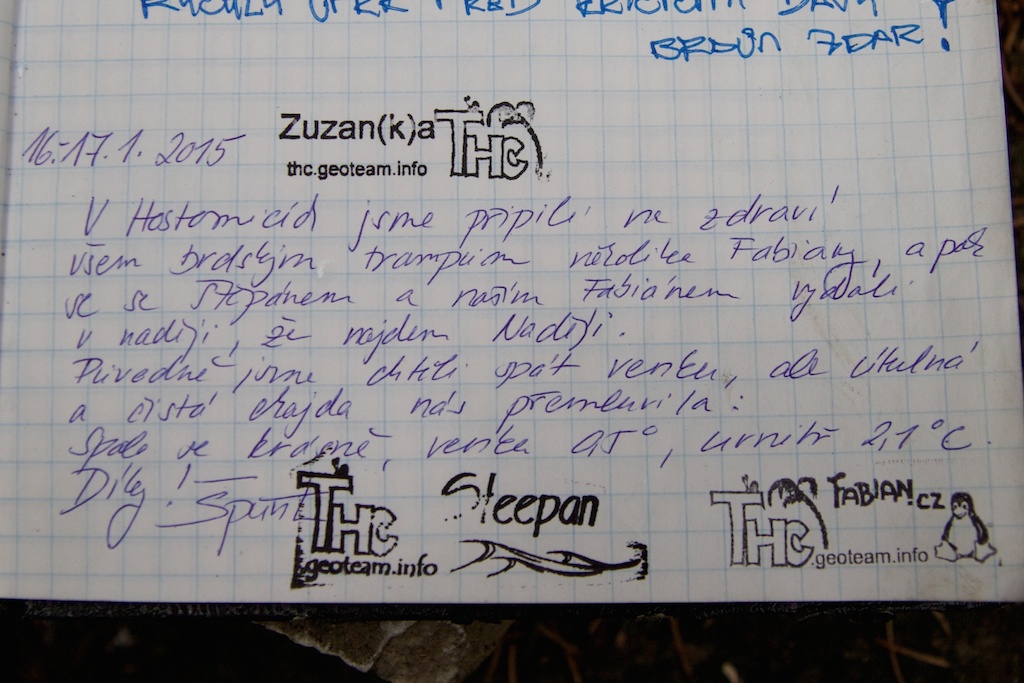 PŘED KŘIČÍCÍM DAVY !
BRDŮM ZDAR!
16.-17.1. 2015
Zuzan(k)a THC
thc.geoteam.info
V Hostomicích jsme připili na zdraví
všem brdským trampům nějakého Fabiana, a pak
se se Štěpánem a naším Fabiánem vydali
v naději, že najdem Naději.
Původně jsme chtěli spát venku, ale útulná
a čistá chajda nás přemluvila:
Spalo se krásně, venku 0,5°, uvnitř 2,1°C.
Díky! Špunt
THC
geoteam.info
Steepan
THC FABIAN.CZ
.geoteam.info